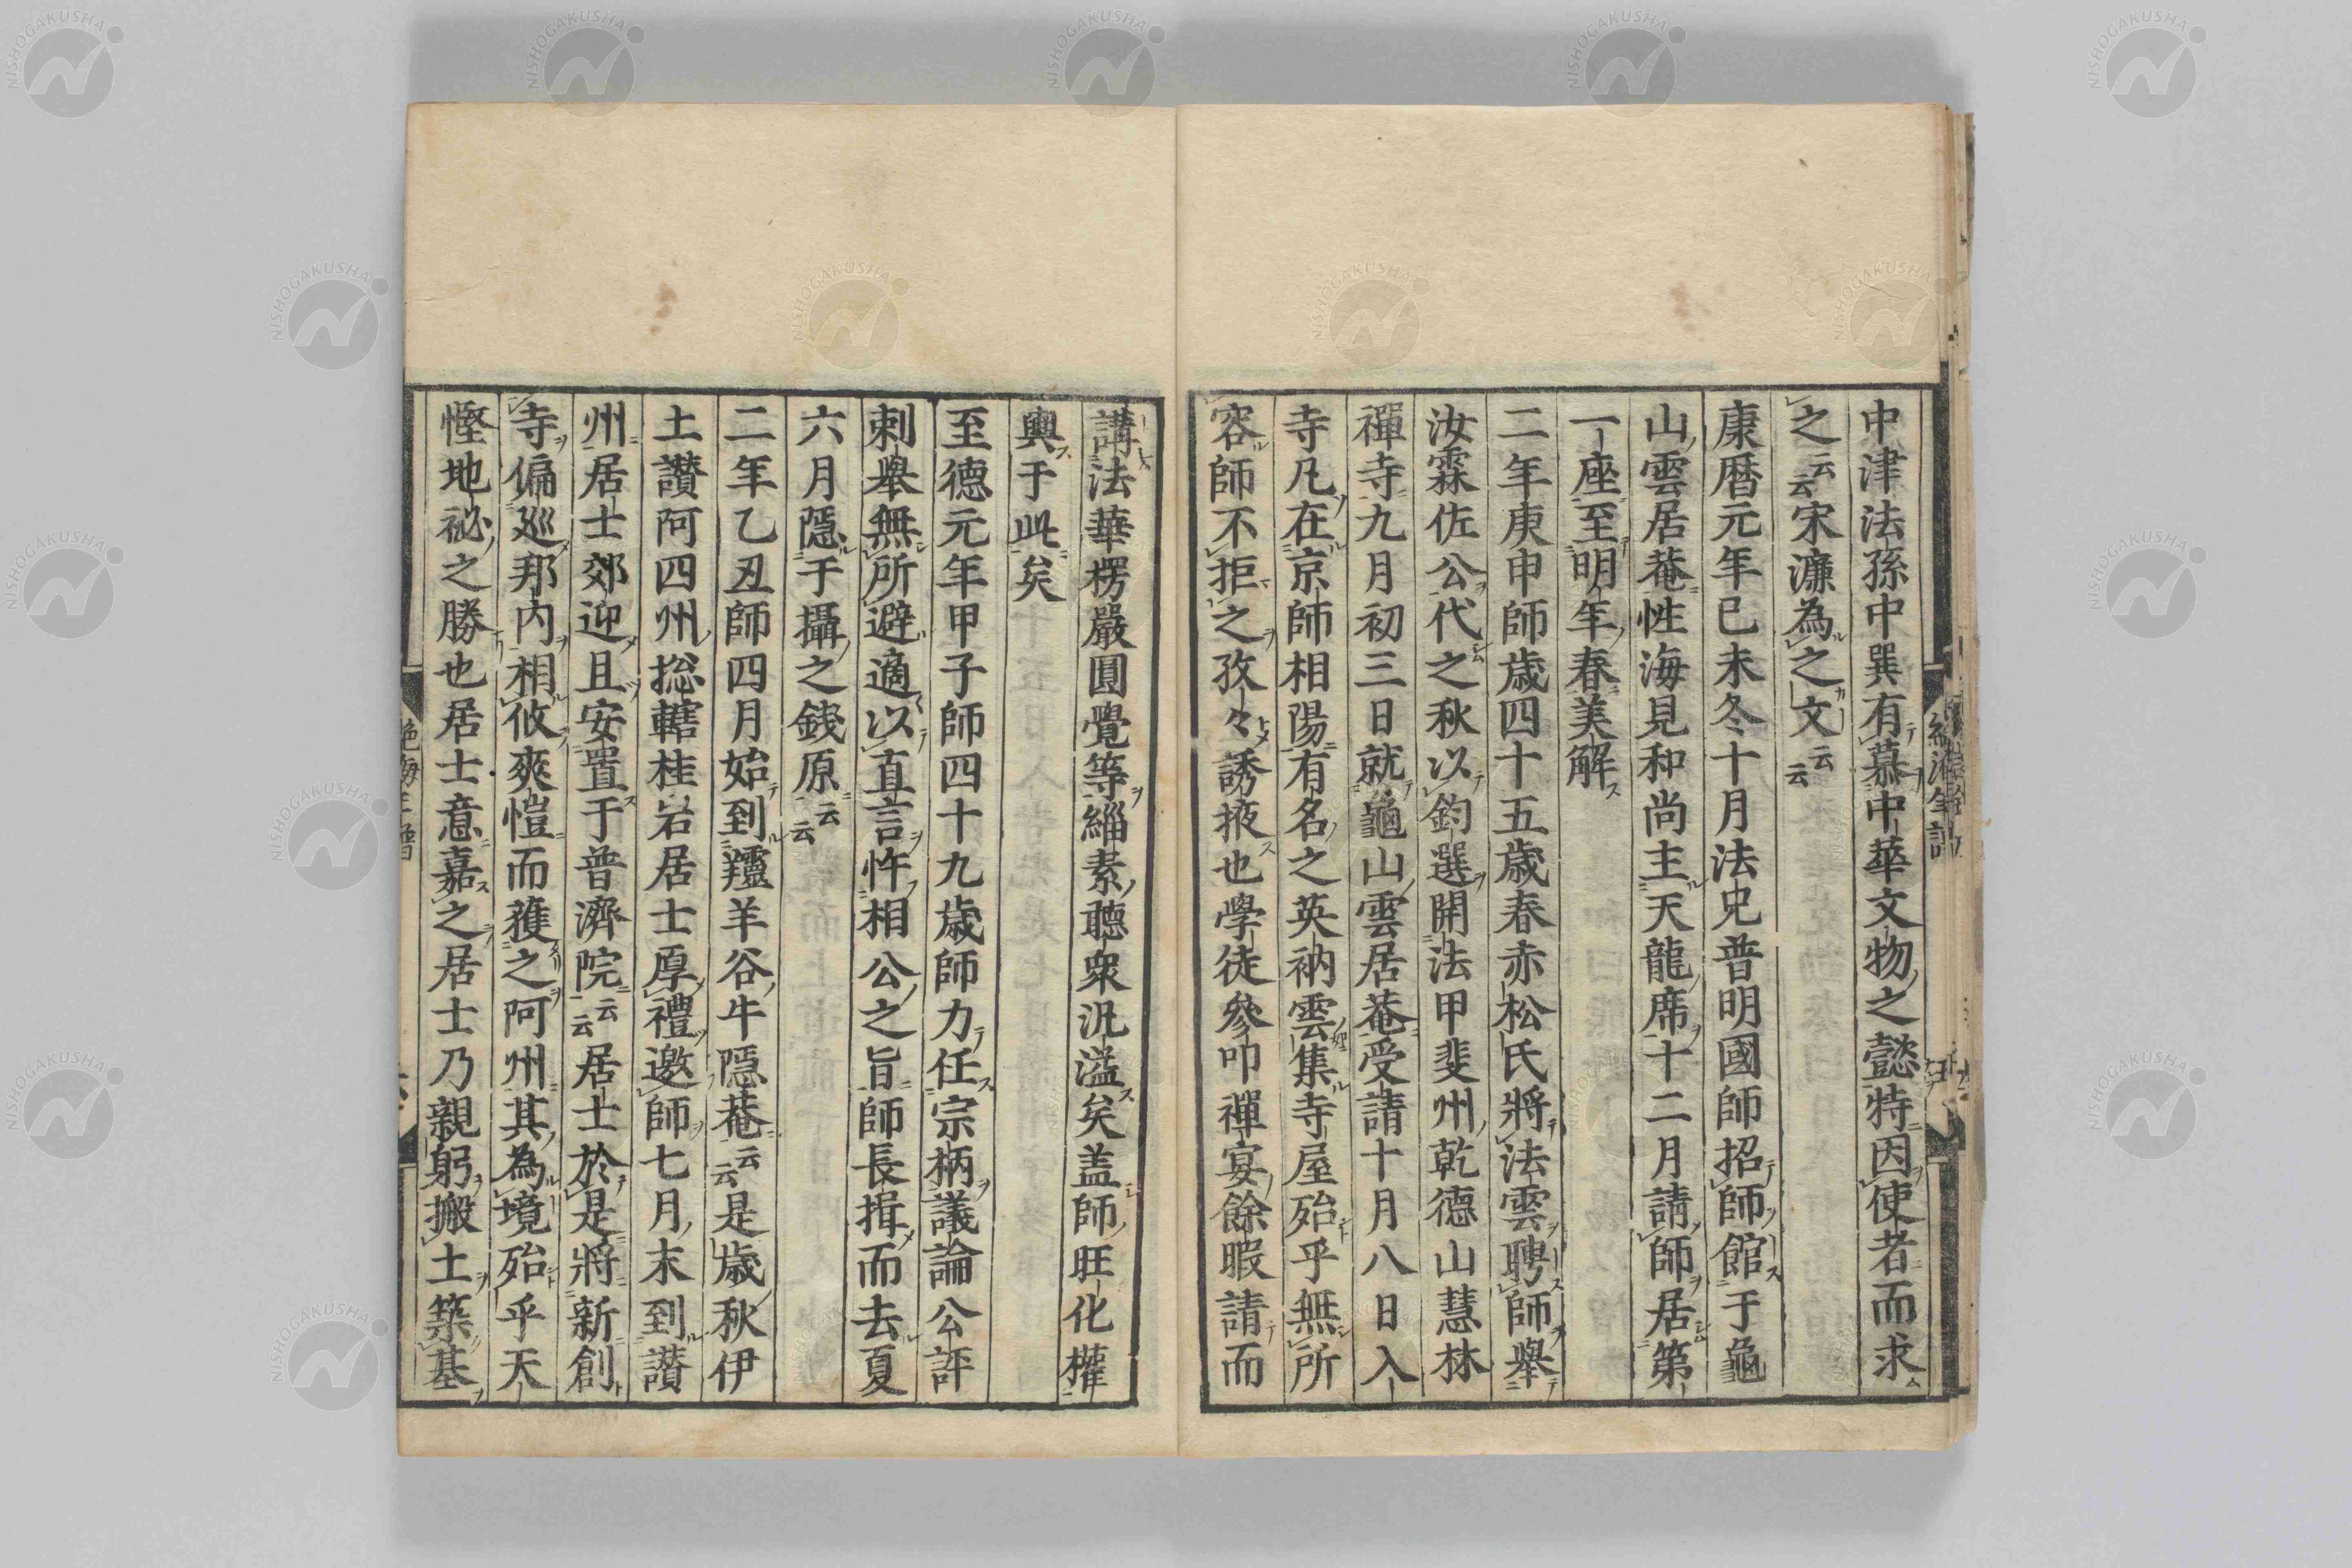 中津法孫中巽有慕中華文物之懿特因使者而求
之云云宋濂為之文云云
康暦元年己未冬十月法兄普明國師招師館于龜
山雲居菴性海見和尚主天龍席十二月請師居第
一座至明年春美解
二年庚申師歳四十五歳春赤松氏將法雲聘師舉
汝霖佐公代之秋以鈞選開法甲斐州乾德山慧林
禪寺九月初三日就龜山雲居菴受請十月八日入
寺凡在京師相陽有名之英衲雲集寺屋殆乎無所
容師不拒之孜々誘掖也學徒參叩禪宴餘暇請而
講法華楞嚴圓覺等緇素聽衆汎溢矣盖師旺化權
輿于此矣
至德元年甲子師四十九歳師力任宗柄議論公評
刺舉無所避適以直言忤相公之旨師長揖而去夏
六月隱于攝之錢原云云
二年乙丑師四月始到羶羊谷牛隱菴云云是歳秋伊
土讃阿四州総轄桂岩居士厚禮邀師七月末到讃
州居士郊迎且安置于普濟院云云居士於是將新創
寺偏巡邦内相攸爽愷而獲之阿州其為境殆乎天
慳地祕之勝也居士意嘉之居士乃親躬搬土築基